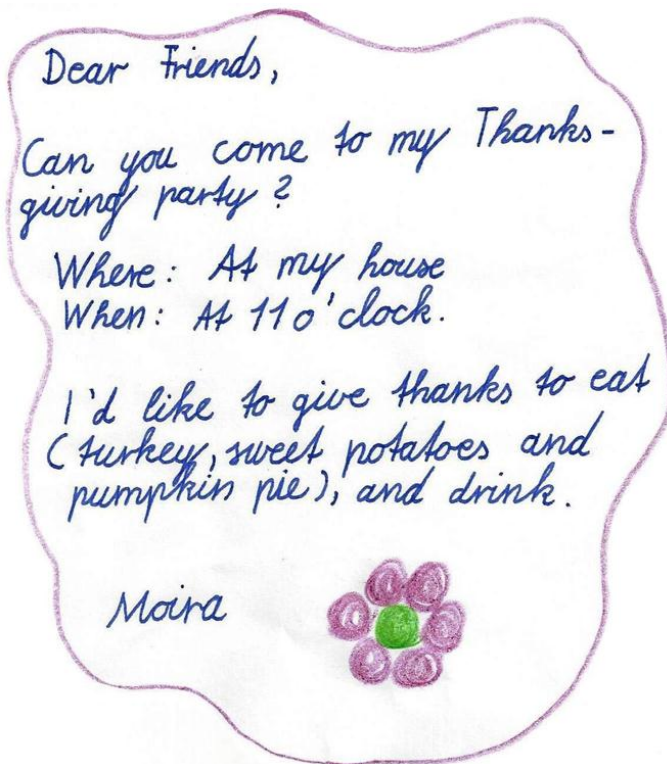 Dear Friends,
Can you come to my Thanks-
giving party?
Where: At my house
When: At 11 o'clock.
I'd like to give thanks to eat
(turkey, sweet potatoes and
pumpkin pie), and drink.
Moira